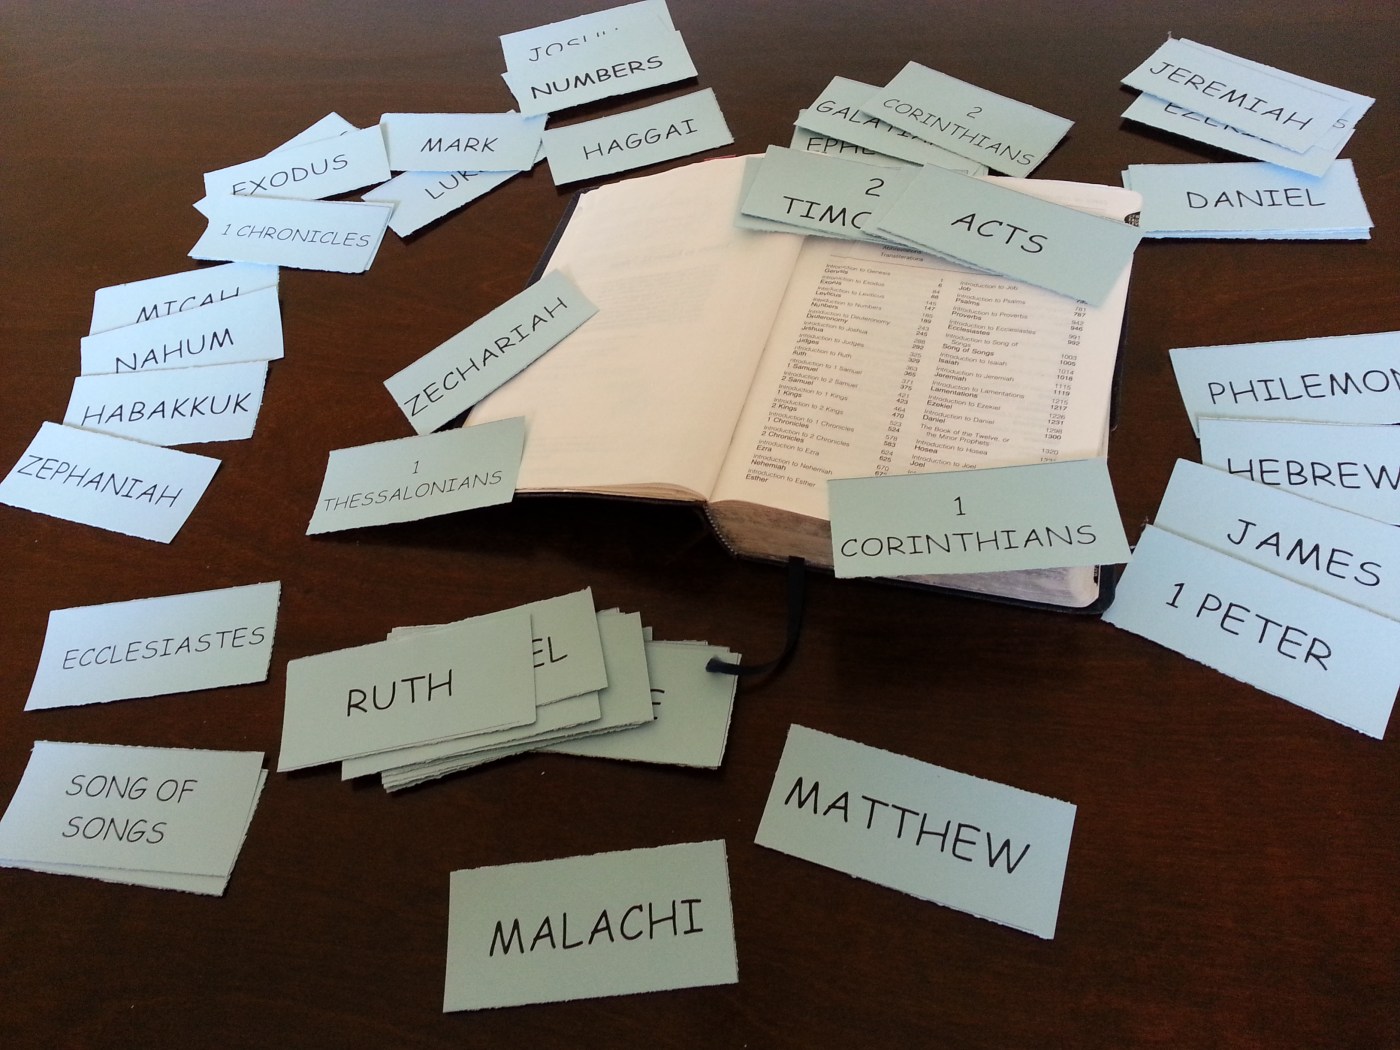 NUMBERS
HAGGAI
MARK
LUK
EXODUS
1 CHRONICLES
2
CORINTHIANS
GALATI
EPH
2
TIMO
ACTS
JEREMIAH
EZEK
S
DANIEL
MICAH
NAHUM
HABAKKUK
ZEPHANIAH
ZECHARIAH
1
THESSALONIANS
1
CORINTHIANS
PHILEMON
HEBREW
JAMES
1 PETER
ECCLESIASTES
SONG OF
SONGS
RUTH
EL
MATTHEW
MALACHI
Introduction to Genesis 1
Genesis
Exodus
Introduction to Leviticus
Leviticus
Introduction to Numbers
Numbers
Introduction to Deuteronomy
Deuteronomy
Introduction to Joshua 243
Joshua 245
Introduction to Judges
Judges 292
Introduction to Ruth 325
Ruth 329
Introduction to 1 Samuel 363
1 Samuel 365
Introduction to 2 Samuel 371
2 Samuel 375
Introduction to 1 Kings 421
1 Kings 423
Introduction to 2 Kings 464
2 Kings 470
Introduction to 1 Chronicles 523
1 Chronicles 524
Introduction to 2 Chronicles 578
2 Chronicles 583
Introduction to Ezra 624
Ezra 625
Introduction to Nehemiah 670
Nehemiah
Introduction to Esther
Esther
Introduction to Job
Job
Introduction to Psalms 781
Psalms 787
Introduction to Proverbs 942
Proverbs 946
Introduction to Ecclesiastes 991
Ecclesiastes 992
Introduction to Song of
Songs 1003
Song of Songs 1005
Introduction to Isaiah 1014
Isaiah 1018
Introduction to Jeremiah 1115
Jeremiah 1119
Introduction to Lamentations 1215
Lamentations 1217
Introduction to Ezekiel 1226
Ezekiel 1231
Introduction to Daniel 1298
Daniel 1300
The Book of the Twelve, or
the Minor Prophets
Introduction to Hosea 1320
Hosea
Introduction to Joel
Joel